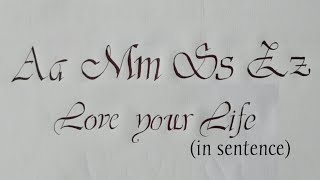 Aa Mm Ss Zz
Love your Life
(in sentence)